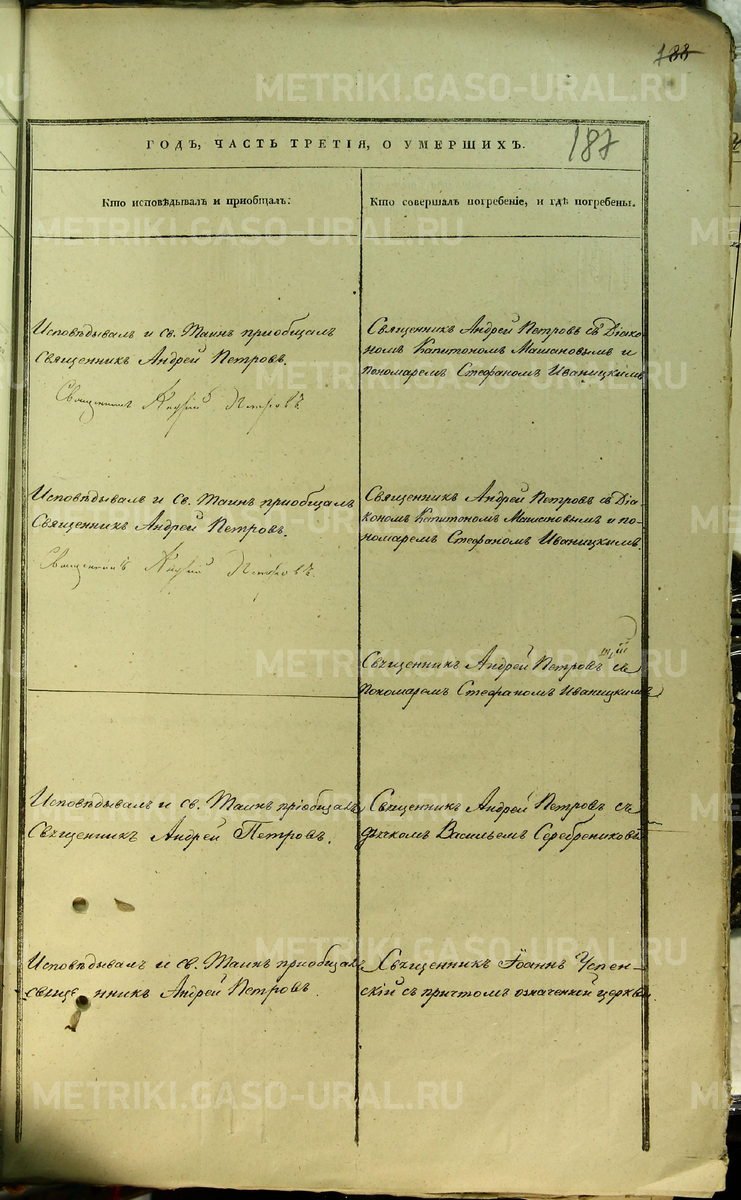 188
187
ГОДЪ, ЧАСТЬ ТРЕТІЯ, О УМЕРШИХЪ.
Кто исповѣдывалъ и приобщалъ:
Кто совершалъ погребеніе, и гдѣ погребены.
Исповѣдывалъ и св. Таинъ приобщалъ
Священникъ Андрей Петровъ.
Священникъ Андрей Петровъ
Священникъ Андрей Петровъ съ Діако-
номъ Капитономъ Машановымъ и
пономаремъ Стефаномъ Иваницкимъ
Исповѣдывалъ и Св. Таинъ приобщалъ
Священникъ Андрей Петровъ.
Священникъ Андрей Петровъ
Священникъ Андрей Петровъ съ Діа-
кономъ Капитономъ Машановымъ и по-
номаремъ Стефаномъ Иваницкимъ.
Священникъ Андрей Петровъ съ
пономаремъ Стефаномъ Иваницкимъ
Исповѣдывалъ и св. Таинъ пріобщалъ
Священникъ Андрей Петровъ.
Священникъ Андрей Петровъ съ
дьячкомъ Васильемъ Серебрениковымъ
Исповѣдывалъ и св. Таинъ приобщалъ
священникъ Андрей Петровъ.
Священникъ Іоаннъ Успен-
скій съ причтомъ означенной церкви.
METRIKI.GASO-URAL.RU